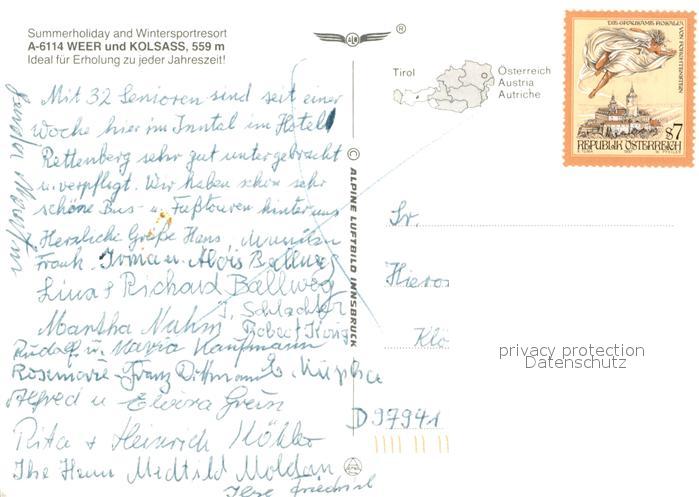 Summerholiday and Wintersportresort
A-6114 WEER und KOLSASS, 559 m
Ideal für Erholung zu jeder Jahreszeit!
Mit 32 Senioren sind seit einer
Woche hier im Inntal im Hotel
Rettenberg sehr gut untergebracht
u. verpflegt. Wir haben schon sehr
schöne Bus- u. Fußtouren hinter uns
Herzliche Grüße Hans,
Frank. Irma u. Alois Ballweg
Lina & Richard Ballweg
J. Schlachter
Martha Nahm Robert König
Rudolf u. Maria Kaufmann
Rosemarie - Franz Dittmann
Alfred u Elvira Grein
Rita + Heinrich Köhler
Ihre Herm Mechtild Moldan
Ilse Friedrich
ALPINE LUFTBILD INNSBRUCK
Tirol
Österreich
Austria
Autriche
DIE GRAUSAME ROSALIA
VON FORCHTENSTEIN
S 7
REPUBLIK ÖSTERREICH
Sr.
Hieros
Klö
D 97941
privacy protection
Datenschutz